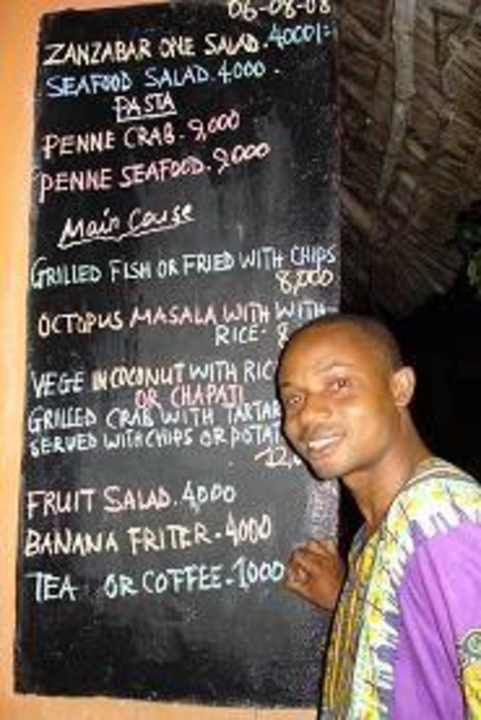 06-08-08
ZANZABAR ONE SALAD. 4000/=
SEAFOOD SALAD. 4000.
PASTA
PENNE CRAB. 9,000
PENNE SEAFOOD. 9000
Main Couse
GRILLED FISH OR FRIED WITH CHIPS
8,000
OCTOPUS MASALA WITH WITH
RICE- 8
VEGE IN COCONUT WITH RIC
OR CHAPATI
GRILLED CRAB WITH TARTAR
SERVED WITH CHIPS OR POTAT
12,
FRUIT SALAD. 4,000
BANANA FRITER- 4000
TEA OR COFFEE- 1,000